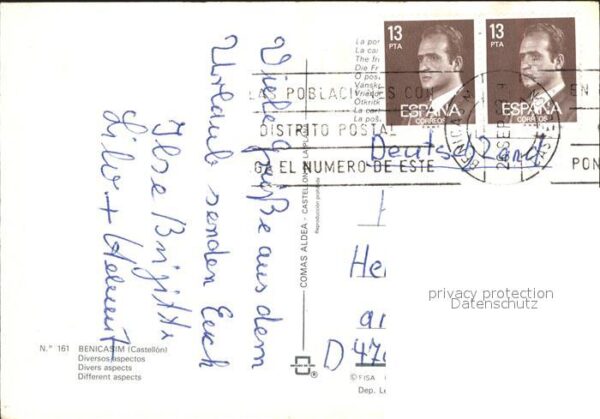 Viele Grüße aus dem
Urlaub senden Euch
Ilse Brigitte
Lilo + Helmut
N.° 161 BENICASIM (Castellón)
Diversos aspectos
Divers aspects
Different aspects
COMAS ALDEA - CASTELLON DE LA PLANA
Reproducción prohibida
©FISA
Dep. Le
La po
La ca
The fr
Die Fr
O pos
Vansk
Vriend
Otkrit
La car
La poš
13
PTA
ESPAÑA
CORREOS
13
PTA
ESPAÑA
CORREOS
LAS POBLACIONES CON
DISTRITO POSTAL
GA EL NUMERO DE ESTE
EN
PON
BENICASIM
SEP
Deutschland
He
an
D 47
privacy protection
Datenschutz